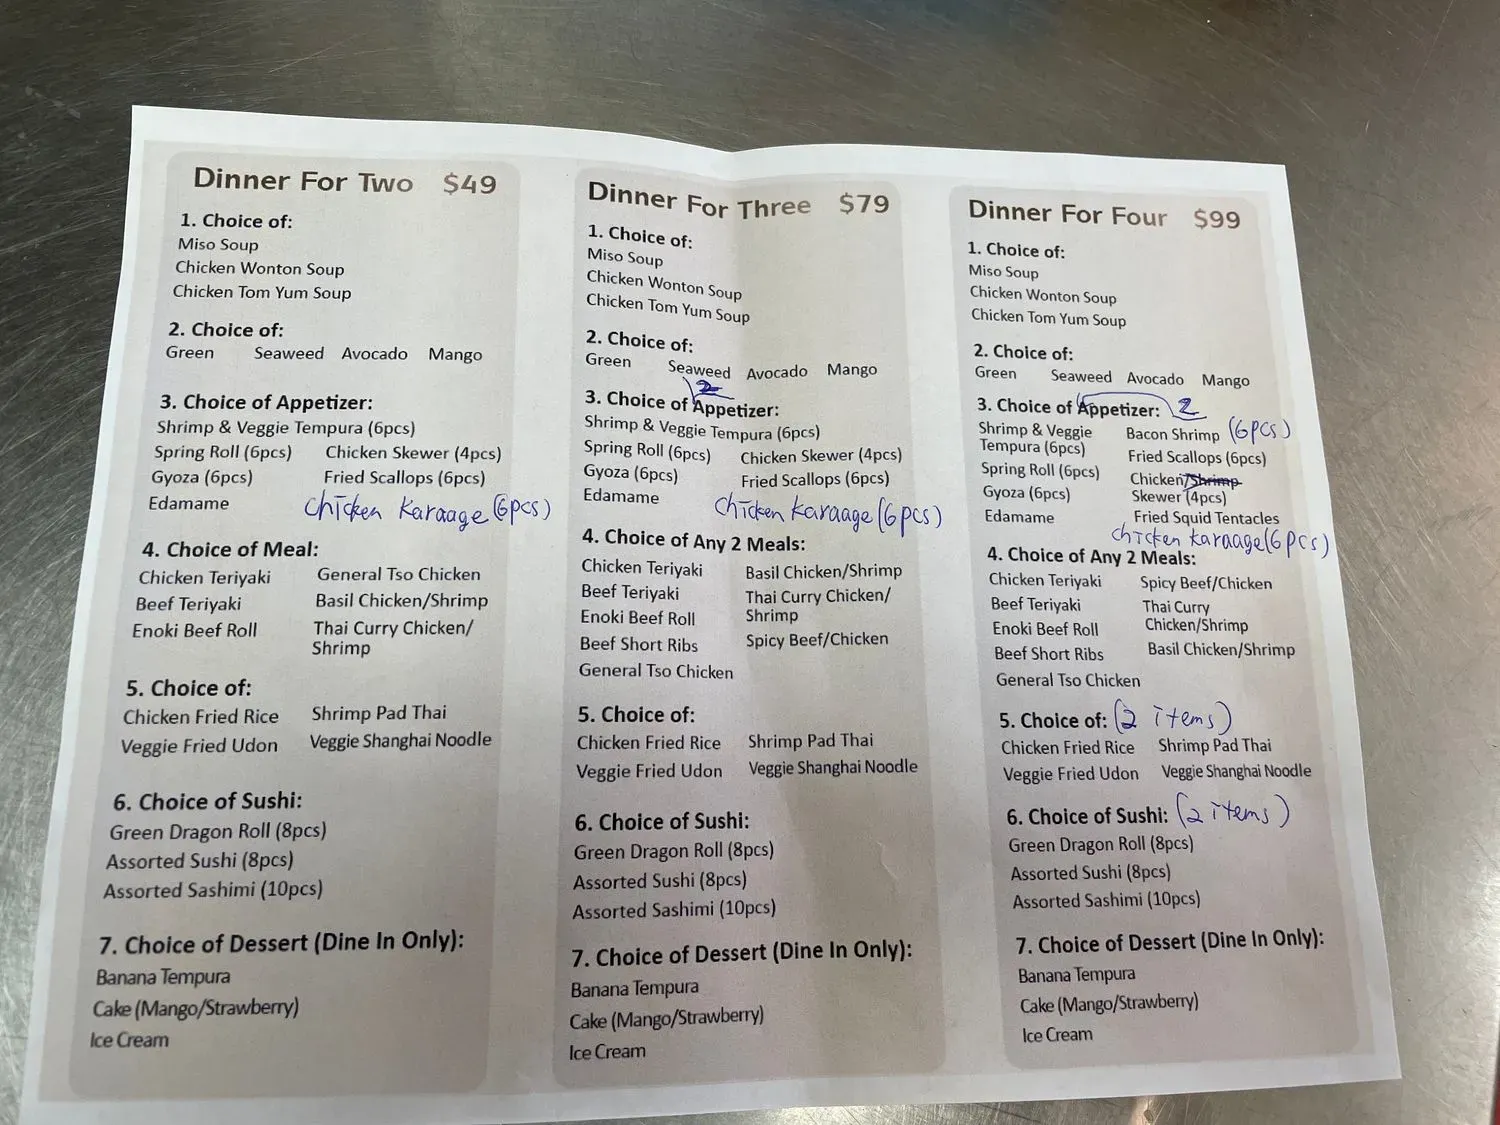 Dinner For Two $49
1. Choice of:
Miso Soup
Chicken Wonton Soup
Chicken Tom Yum Soup
2. Choice of:
Green Seaweed Avocado Mango
3. Choice of Appetizer:
Shrimp & Veggie Tempura (6pcs)
Spring Roll (6pcs) Chicken Skewer (4pcs)
Gyoza (6pcs) Fried Scallops (6pcs)
Edamame chicken Karaage (6pcs)
4. Choice of Meal:
Chicken Teriyaki General Tso Chicken
Beef Teriyaki Basil Chicken/Shrimp
Enoki Beef Roll Thai Curry Chicken/
Shrimp
5. Choice of:
Chicken Fried Rice Shrimp Pad Thai
Veggie Fried Udon Veggie Shanghai Noodle
6. Choice of Sushi:
Green Dragon Roll (8pcs)
Assorted Sushi (8pcs)
Assorted Sashimi (10pcs)
7. Choice of Dessert (Dine In Only):
Banana Tempura
Cake (Mango/Strawberry)
Ice Cream
Dinner For Three $79
1. Choice of:
Miso Soup
Chicken Wonton Soup
Chicken Tom Yum Soup
2. Choice of:
Green Seaweed Avocado Mango
2
3. Choice of Appetizer:
Shrimp & Veggie Tempura (6pcs)
Spring Roll (6pcs) Chicken Skewer (4pcs)
Gyoza (6pcs) Fried Scallops (6pcs)
Edamame chicken karaage (6pcs)
4. Choice of Any 2 Meals:
Chicken Teriyaki Basil Chicken/Shrimp
Beef Teriyaki Thai Curry Chicken/
Enoki Beef Roll Shrimp
Beef Short Ribs Spicy Beef/Chicken
General Tso Chicken
5. Choice of:
Chicken Fried Rice Shrimp Pad Thai
Veggie Fried Udon Veggie Shanghai Noodle
6. Choice of Sushi:
Green Dragon Roll (8pcs)
Assorted Sushi (8pcs)
Assorted Sashimi (10pcs)
7. Choice of Dessert (Dine In Only):
Banana Tempura
Cake (Mango/Strawberry)
Ice Cream
Dinner For Four $99
1. Choice of:
Miso Soup
Chicken Wonton Soup
Chicken Tom Yum Soup
2. Choice of:
Green Seaweed Avocado Mango
3. Choice of Appetizer: 2
Shrimp & Veggie Bacon Shrimp (6pcs)
Tempura (6pcs) Fried Scallops (6pcs)
Spring Roll (6pcs) Chicken/Shrimp
Gyoza (6pcs) Skewer (4pcs)
Edamame Fried Squid Tentacles
chicken karaage (6pcs)
4. Choice of Any 2 Meals:
Chicken Teriyaki Spicy Beef/Chicken
Beef Teriyaki Thai Curry
Enoki Beef Roll Chicken/Shrimp
Beef Short Ribs Basil Chicken/Shrimp
General Tso Chicken
5. Choice of: (2 items)
Chicken Fried Rice Shrimp Pad Thai
Veggie Fried Udon Veggie Shanghai Noodle
6. Choice of Sushi: (2 items)
Green Dragon Roll (8pcs)
Assorted Sushi (8pcs)
Assorted Sashimi (10pcs)
7. Choice of Dessert (Dine In Only):
Banana Tempura
Cake (Mango/Strawberry)
Ice Cream